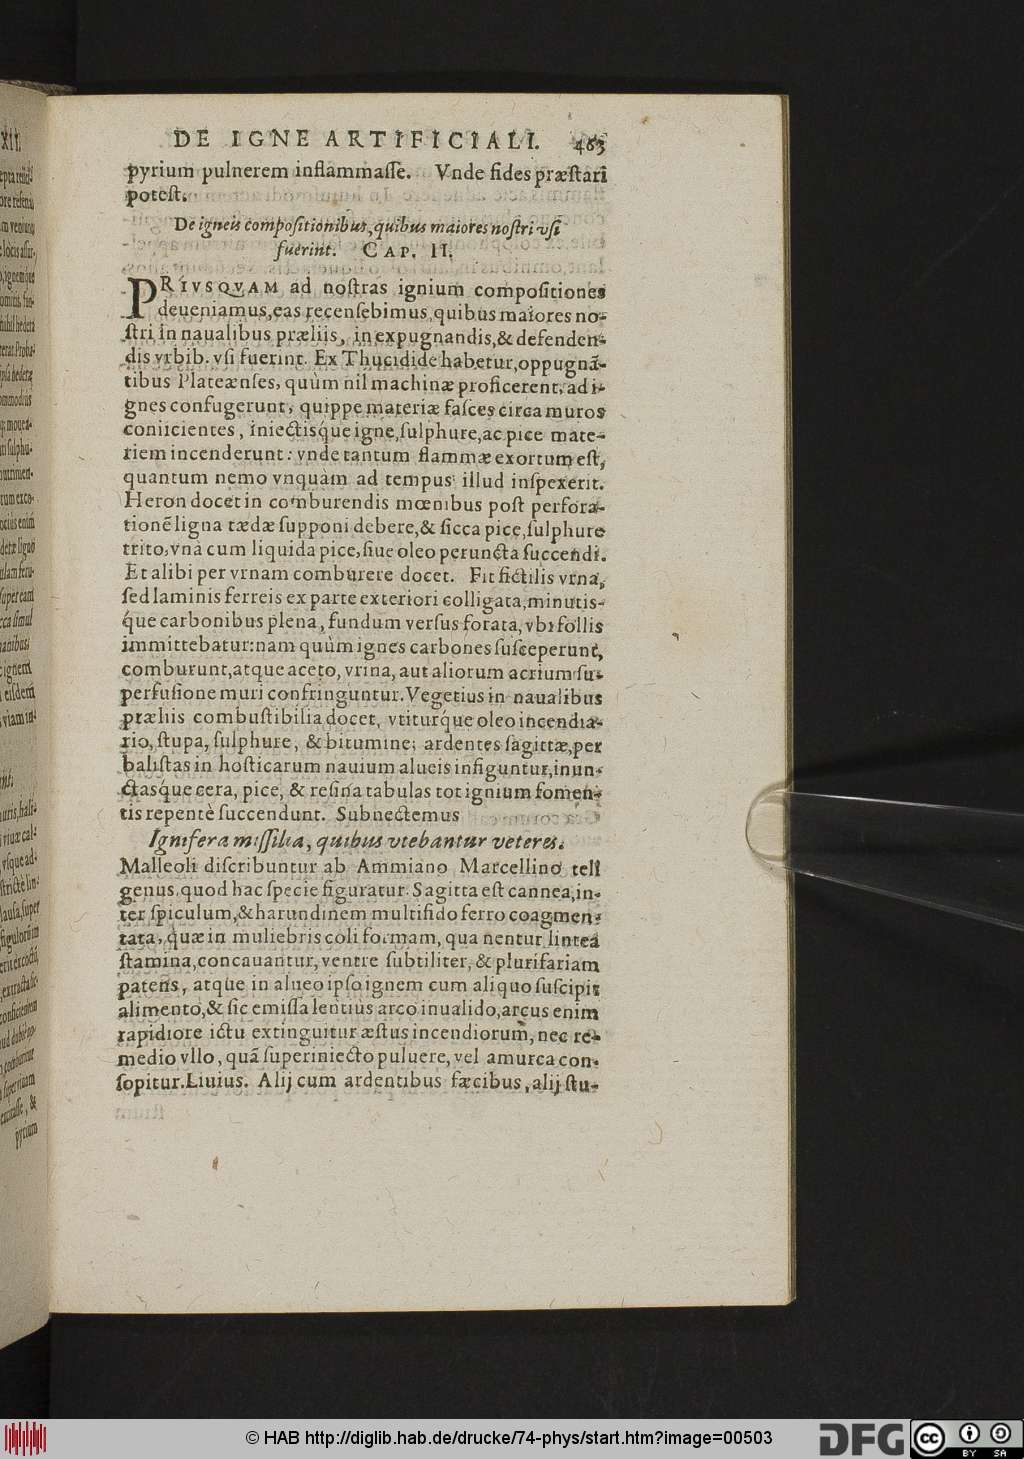 DE IGNE ARTIFICIALI. 483
pyrium pulnerem inflammaſſe. Vnde fides præſtari
poteſt.
De igneis compoſitionibus, quibus maiores noſtri vſi
fuerint. CAP. II.
PRIVSQVAM ad noſtras ignium compoſitiones
deueniamus, eas recenſebimus, quibus maiores no-
ſtri in naualibus præliis, in expugnandis, & defenden-
dis vrbib. vſi fuerint. Ex Thucidide habetur, oppugnã-
tibus Plateænſes, quùm nil machinæ proficerent, ad i-
gnes confugerunt, quippe materiæ faſces circa muros
coniicientes, iniectisq́ue igne, ſulphure, ac pice mate-
riem incenderunt: vnde tantum flammæ exortum eſt,
quantum nemo vnquàm ad tempus illud inſpexerit.
Heron docet in comburendis mœnibus poſt perfora-
tionẽ ligna tædæ ſupponi debere, & ſicca pice, ſulphure
trito, vnà cum liquida pice, ſiue oleo peruncta ſuccendi.
Et alibi per vrnam comburere docet. Fit fictilis vrna,
ſed laminis ferreis ex parte exteriori colligata, minutis-
q́ue carbonibus plena, fundum verſus forata, vbi follis
immittebatur: nam quùm ignes carbones ſuſceperunt,
comburunt, atque aceto, vrina, aut aliorum acrium ſu-
perfuſione muri confringuntur. Vegetius in naualibus
præliis combuſtibilia docet, vtiturq́ue oleo incendia-
rio, ſtupa, ſulphure, & bitumine; ardentes ſagittæ, per
baliſtas in hoſticarum nauium alueis infiguntur, inun-
ctasq́ue cera, pice, & reſina tabulas tot ignium fomen-
tis repentè ſuccendunt. Subnectemus
Ignifera miſſilia, quibus vtebantur veteres.
Malleoli diſcribuntur ab Ammiano Marcellino teli
genus, quod hac ſpecie figuratur. Sagitta eſt cannea, in-
ter ſpiculum, & harundinem multifido ferro coagmen-
tata, quæ in muliebris coli formam, qua nentur lintea
ſtamina, concauantur, ventre ſubtiliter, & plurifariam
patens, atque in alueo ipſo ignem cum aliquo ſuſcipit
alimento, & ſic emiſſa lentius arco inualido, arcus enim
rapidiore ictu extinguitur æſtus incendiorum, nec re-
medio vllo, quã ſuperiniecto puluere, vel amurca con-
ſopitur. Liuius. Alij cum ardentibus fæcibus, alij ſtu-
XII.
pyrium
© HAB http://diglib.hab.de/drucke/74-phys/start.htm?image=00503
DFG
cc BY SA